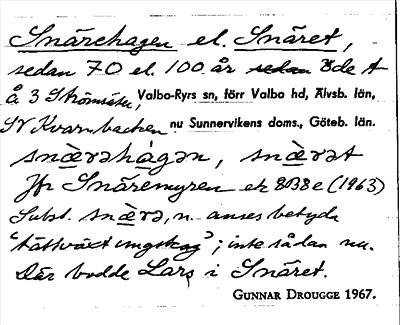 Snärehagen el. Snäret,
sedan 70 el. 100 år sedan öde t
å 3 Strömsäter, Valbo-Ryrs sn, förr Valbo hd, Älvsb. län,
SV Kvarnbacken. nu Sunnervikens doms., Göteb. län.
snæ̀rəhàgən, snæ̀rət
Jfr Snäremyren ek 8B8e (1963)
Subst. snæ̀rə, n. anses betyda
"tättväxt ungskog"; inte sådan nu.
Där bodde Lars i Snäret.
GUNNAR DROUGGE 1967.